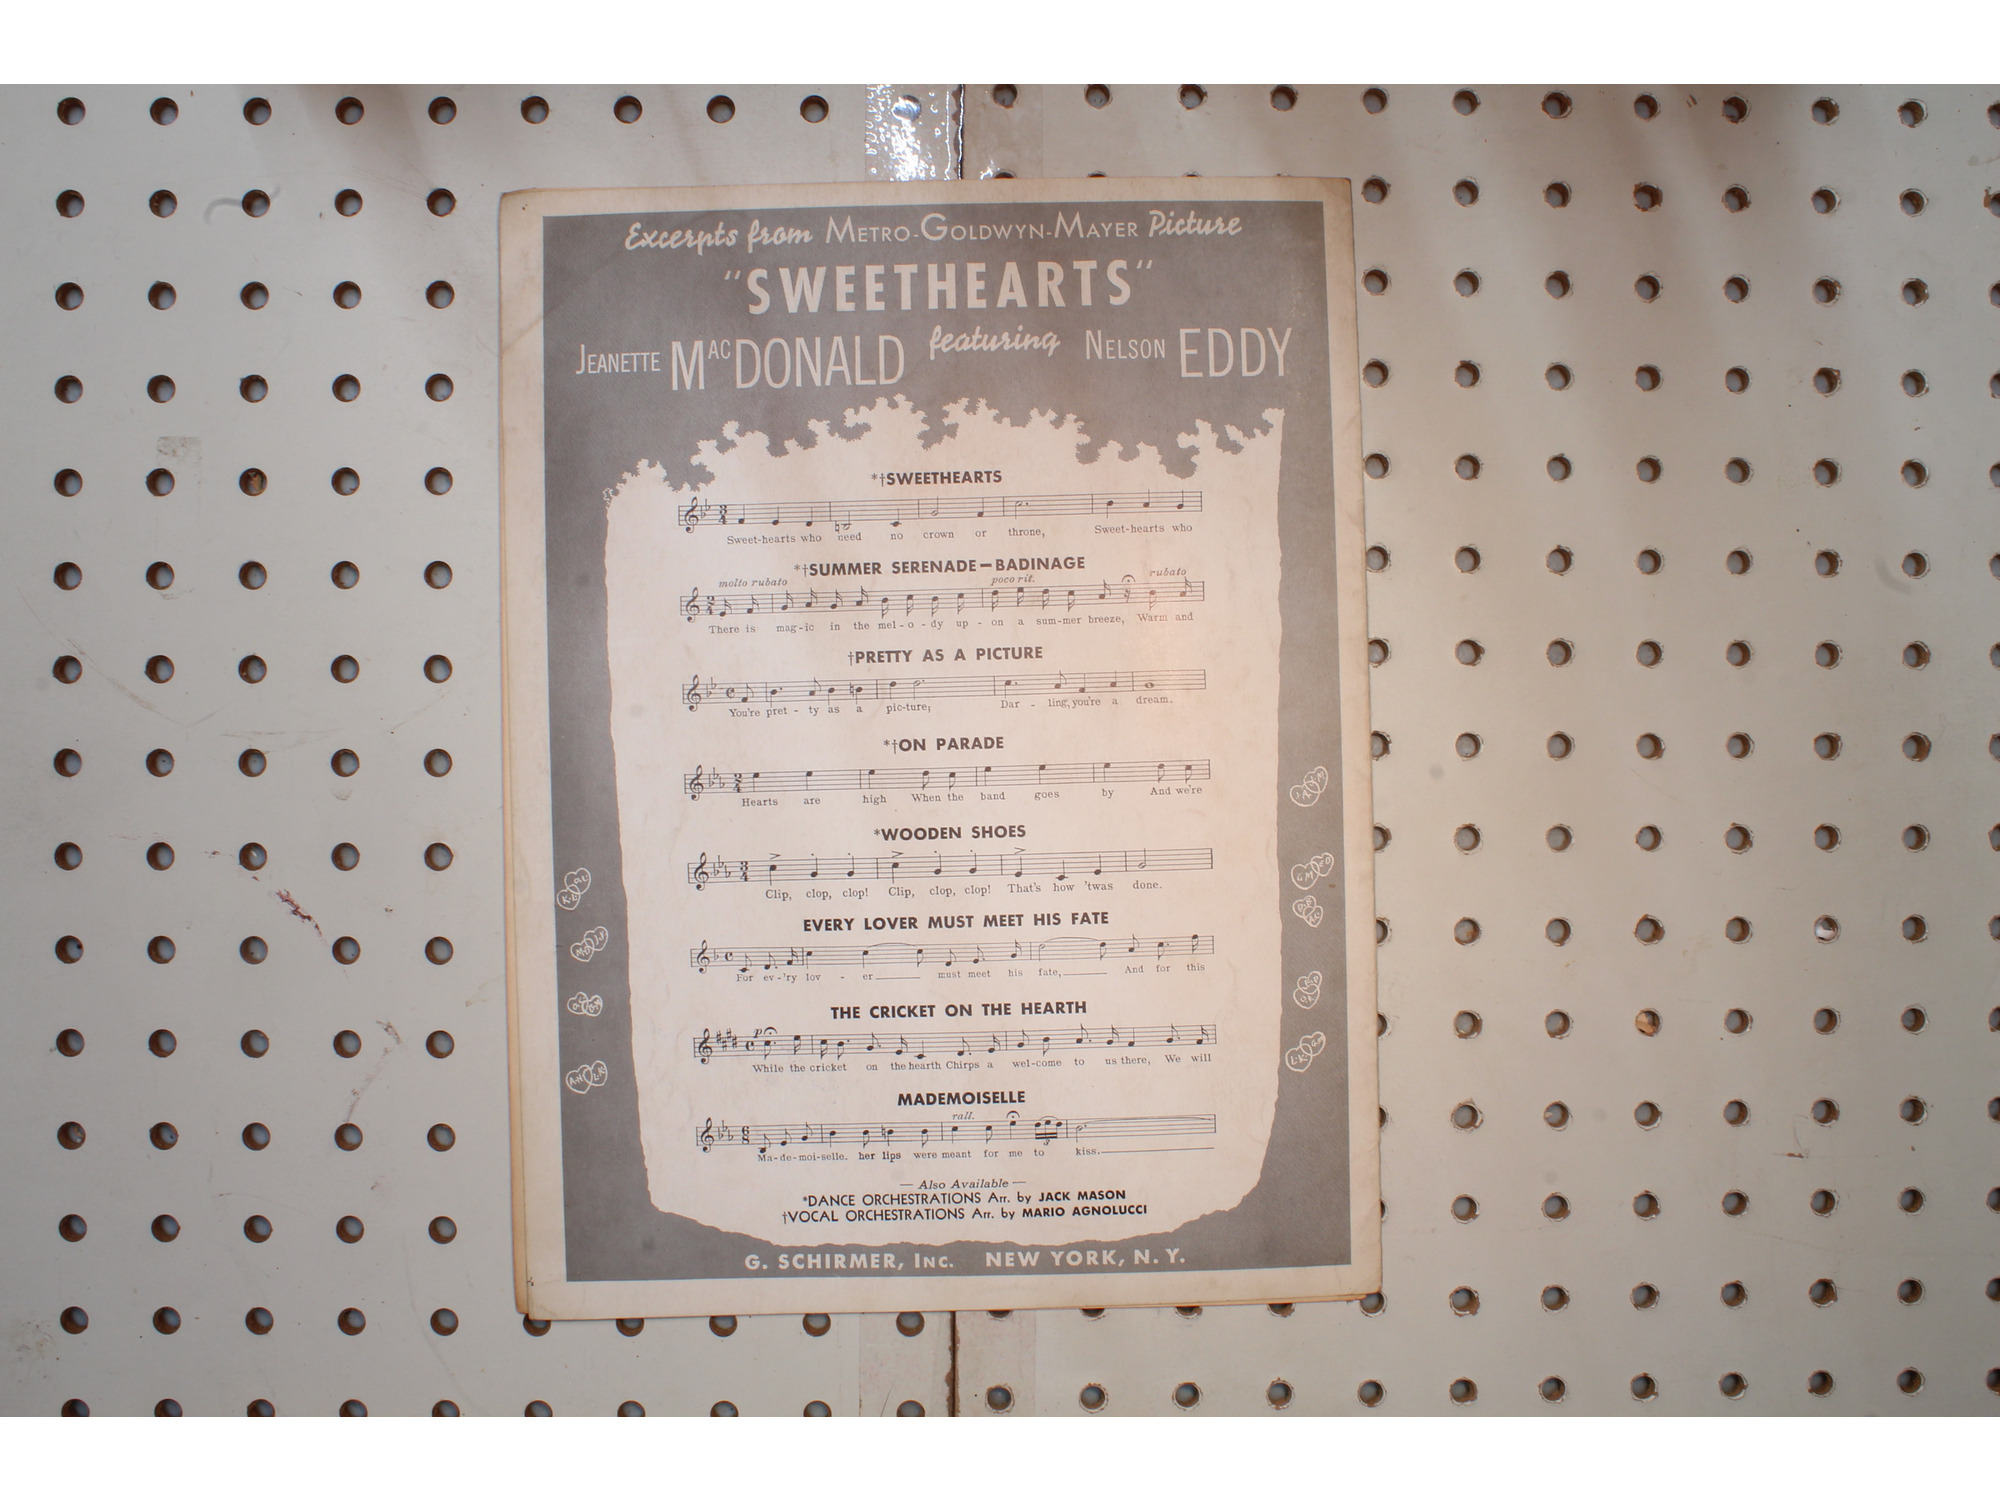 Excerpts from METRO-GOLDWYN-MAYER Picture
"SWEETHEARTS"
JEANETTE MACDONALD featuring NELSON EDDY
*†SWEETHEARTS
Sweet-hearts who need no crown or throne, Sweet-hearts who
*†SUMMER SERENADE—BADINAGE
molto rubato poco rit. rubato
There is mag-ic in the mel-o-dy up-on a sum-mer breeze, Warm and
†PRETTY AS A PICTURE
You're pret-ty as a pic-ture; Dar-ling, you're a dream.
*†ON PARADE
Hearts are high When the band goes by And we're
*WOODEN SHOES
Clip, clop, clop! Clip, clop, clop! That's how 'twas done.
EVERY LOVER MUST MEET HIS FATE
For ev-'ry lov-er must meet his fate, And for this
THE CRICKET ON THE HEARTH
p
While the cricket on the hearth Chirps a wel-come to us there, We will
MADEMOISELLE
rall.
3
Ma-de-moi-selle. her lips were meant for me to kiss.
— Also Available —
*DANCE ORCHESTRATIONS Arr. by JACK MASON
†VOCAL ORCHESTRATIONS Arr. by MARIO AGNOLUCCI
G. SCHIRMER, INC. NEW YORK, N. Y.